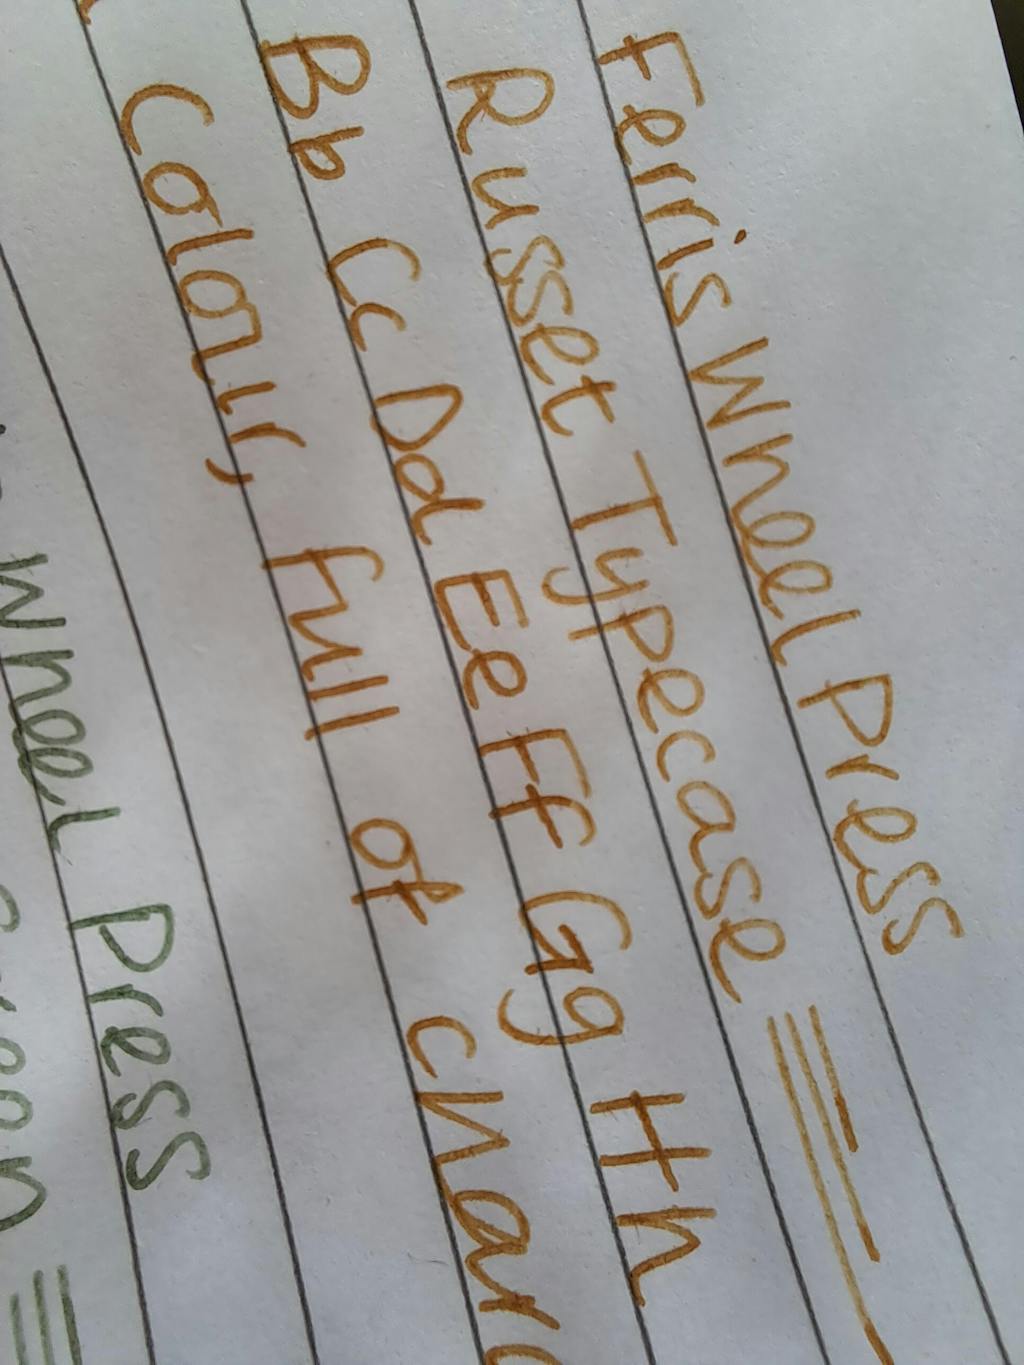 Ferris Wheel Press
Russet Typecase
Bb Cc Dd Ee Ff Gg Hh
Colour, full of
Wheel Press